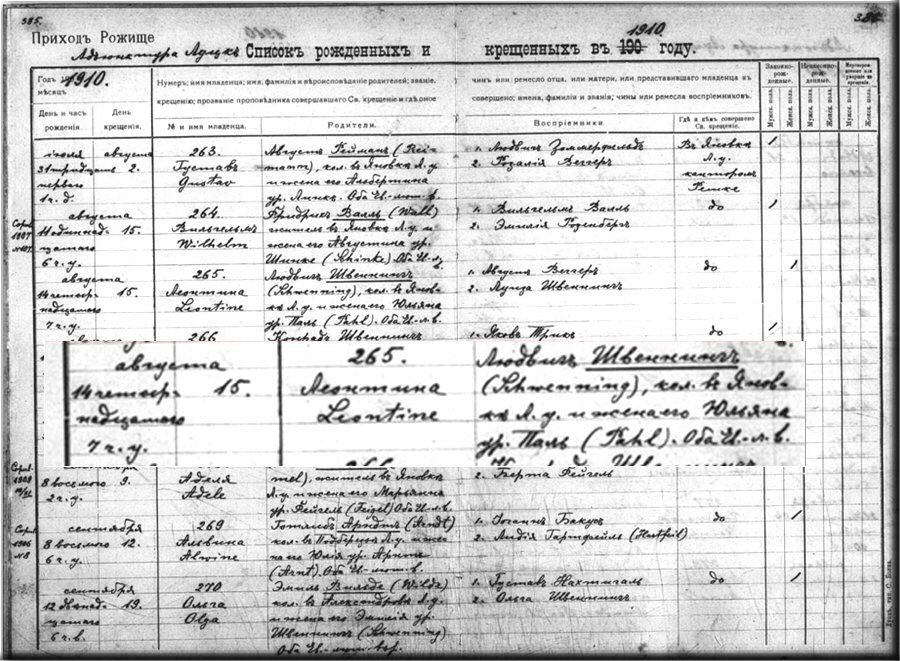 385.
Приходъ Рожище
Адъюнктура Луцкъ Списокъ рожденныхъ и
1910
крещенныхъ въ 190 году.
Годъ 1910.
мѣсяцъ
День и часъ рожденія.
День крещенія.
Нумеръ; имя младенца; имя, фамилія и вѣроисповѣданіе родителей; званіе,
крещенію; прозваніе проповѣдника совершавшаго Св. крещеніе и гдѣ оное
№ и имя младенца.
Родители.
чинъ или ремесло отца, или матери, или представившаго младенца къ
совершено; имена, фамиліи и званія, чины или ремесла воспріемниковъ.
Воспріемники
Гдѣ и кѣмъ совершено Св. крещеніе.
Законно-рожденные.
Незаконно-рожденные.
Мужск. пола.
Женск. пола.
Мужск. пола.
Женск. пола.
Мужск. пола.
Женск. пола.
іюля августа 263. Августъ Рейманъ (Rei- 1. Людвигъ Зоммерфельдъ Въ Яновка 1
31 тридцать 2. Густавъ mann), кол. въ Яновка Л. у. 2. Розалія Веггеръ Л. у.
перваго Gustav и жена его Альбертина канторомъ
1 ч. д. ур. Линке. Оба Ев.-лют. в.
августа 264. Фридрихъ Валль (Wall) 1. Вильгельмъ Валль до 1
11 одиннад- 15. Вильгельмъ житель въ Яновка Л. у. и 2. Эмилія Розенбергъ
цатаго Wilhelm жена его Августина ур.
6 ч. у. Шинке (Schinke) Оба Ев.-л. в.
августа 265. Людвигъ Швеннингъ 1. Августъ Веггеръ до 1
14 четыр- 15. Леонтина (Schwenning), кол. въ Янов- 2. Луиза Швеннингъ
надцатаго Leontine ка Л. у. и жена его Юльяна
7 ч. у. ур. Паль (Pahl). Оба Ев.-л. в.
266 Конрадъ Швеннингъ 1. Яковъ Трикъ до 1
августа 265. Людвигъ Швеннингъ
14 четыр- 15. Леонтина (Schwenning), кол. въ Янов-
надцатаго Leontine ка Л. у. и жена его Юльяна
7 ч. у. ур. Паль (Pahl). Оба Ев.-л. в.
8 восьмого 9. Аделя mel), житель въ Яновка 2. Берта Фейгель
2 ч. у. Adele Л. у. и жена его Марьянна
ур. Фейгель (Feigel) Оба Ев.-л. в.
сентября 269 Готлибъ Арндтъ (Arndt) 1. Іоганнъ Бакусъ до 1
8 восьмого 12. Альвина кол. въ Подберезье Л. у. и же- 2. Лидія Гартфейль (Hartfeil)
6 ч. у. Alwine на его Юлія ур. Арнтъ
(Arnt). Оба Ев.-лют. в.
сентября 270 Эмиль Вильде (Wilde) 1. Густавъ Нахтигаль до 1
12 двѣнад- 19. Ольга кол. въ Александровка Л. у. 2. Ольга Швеннингъ
цатаго Olga и жена его Эмилія ур.
6 ч. в. Швеннингъ (Schwenning)
Оба Ев.-лют. вѣр.